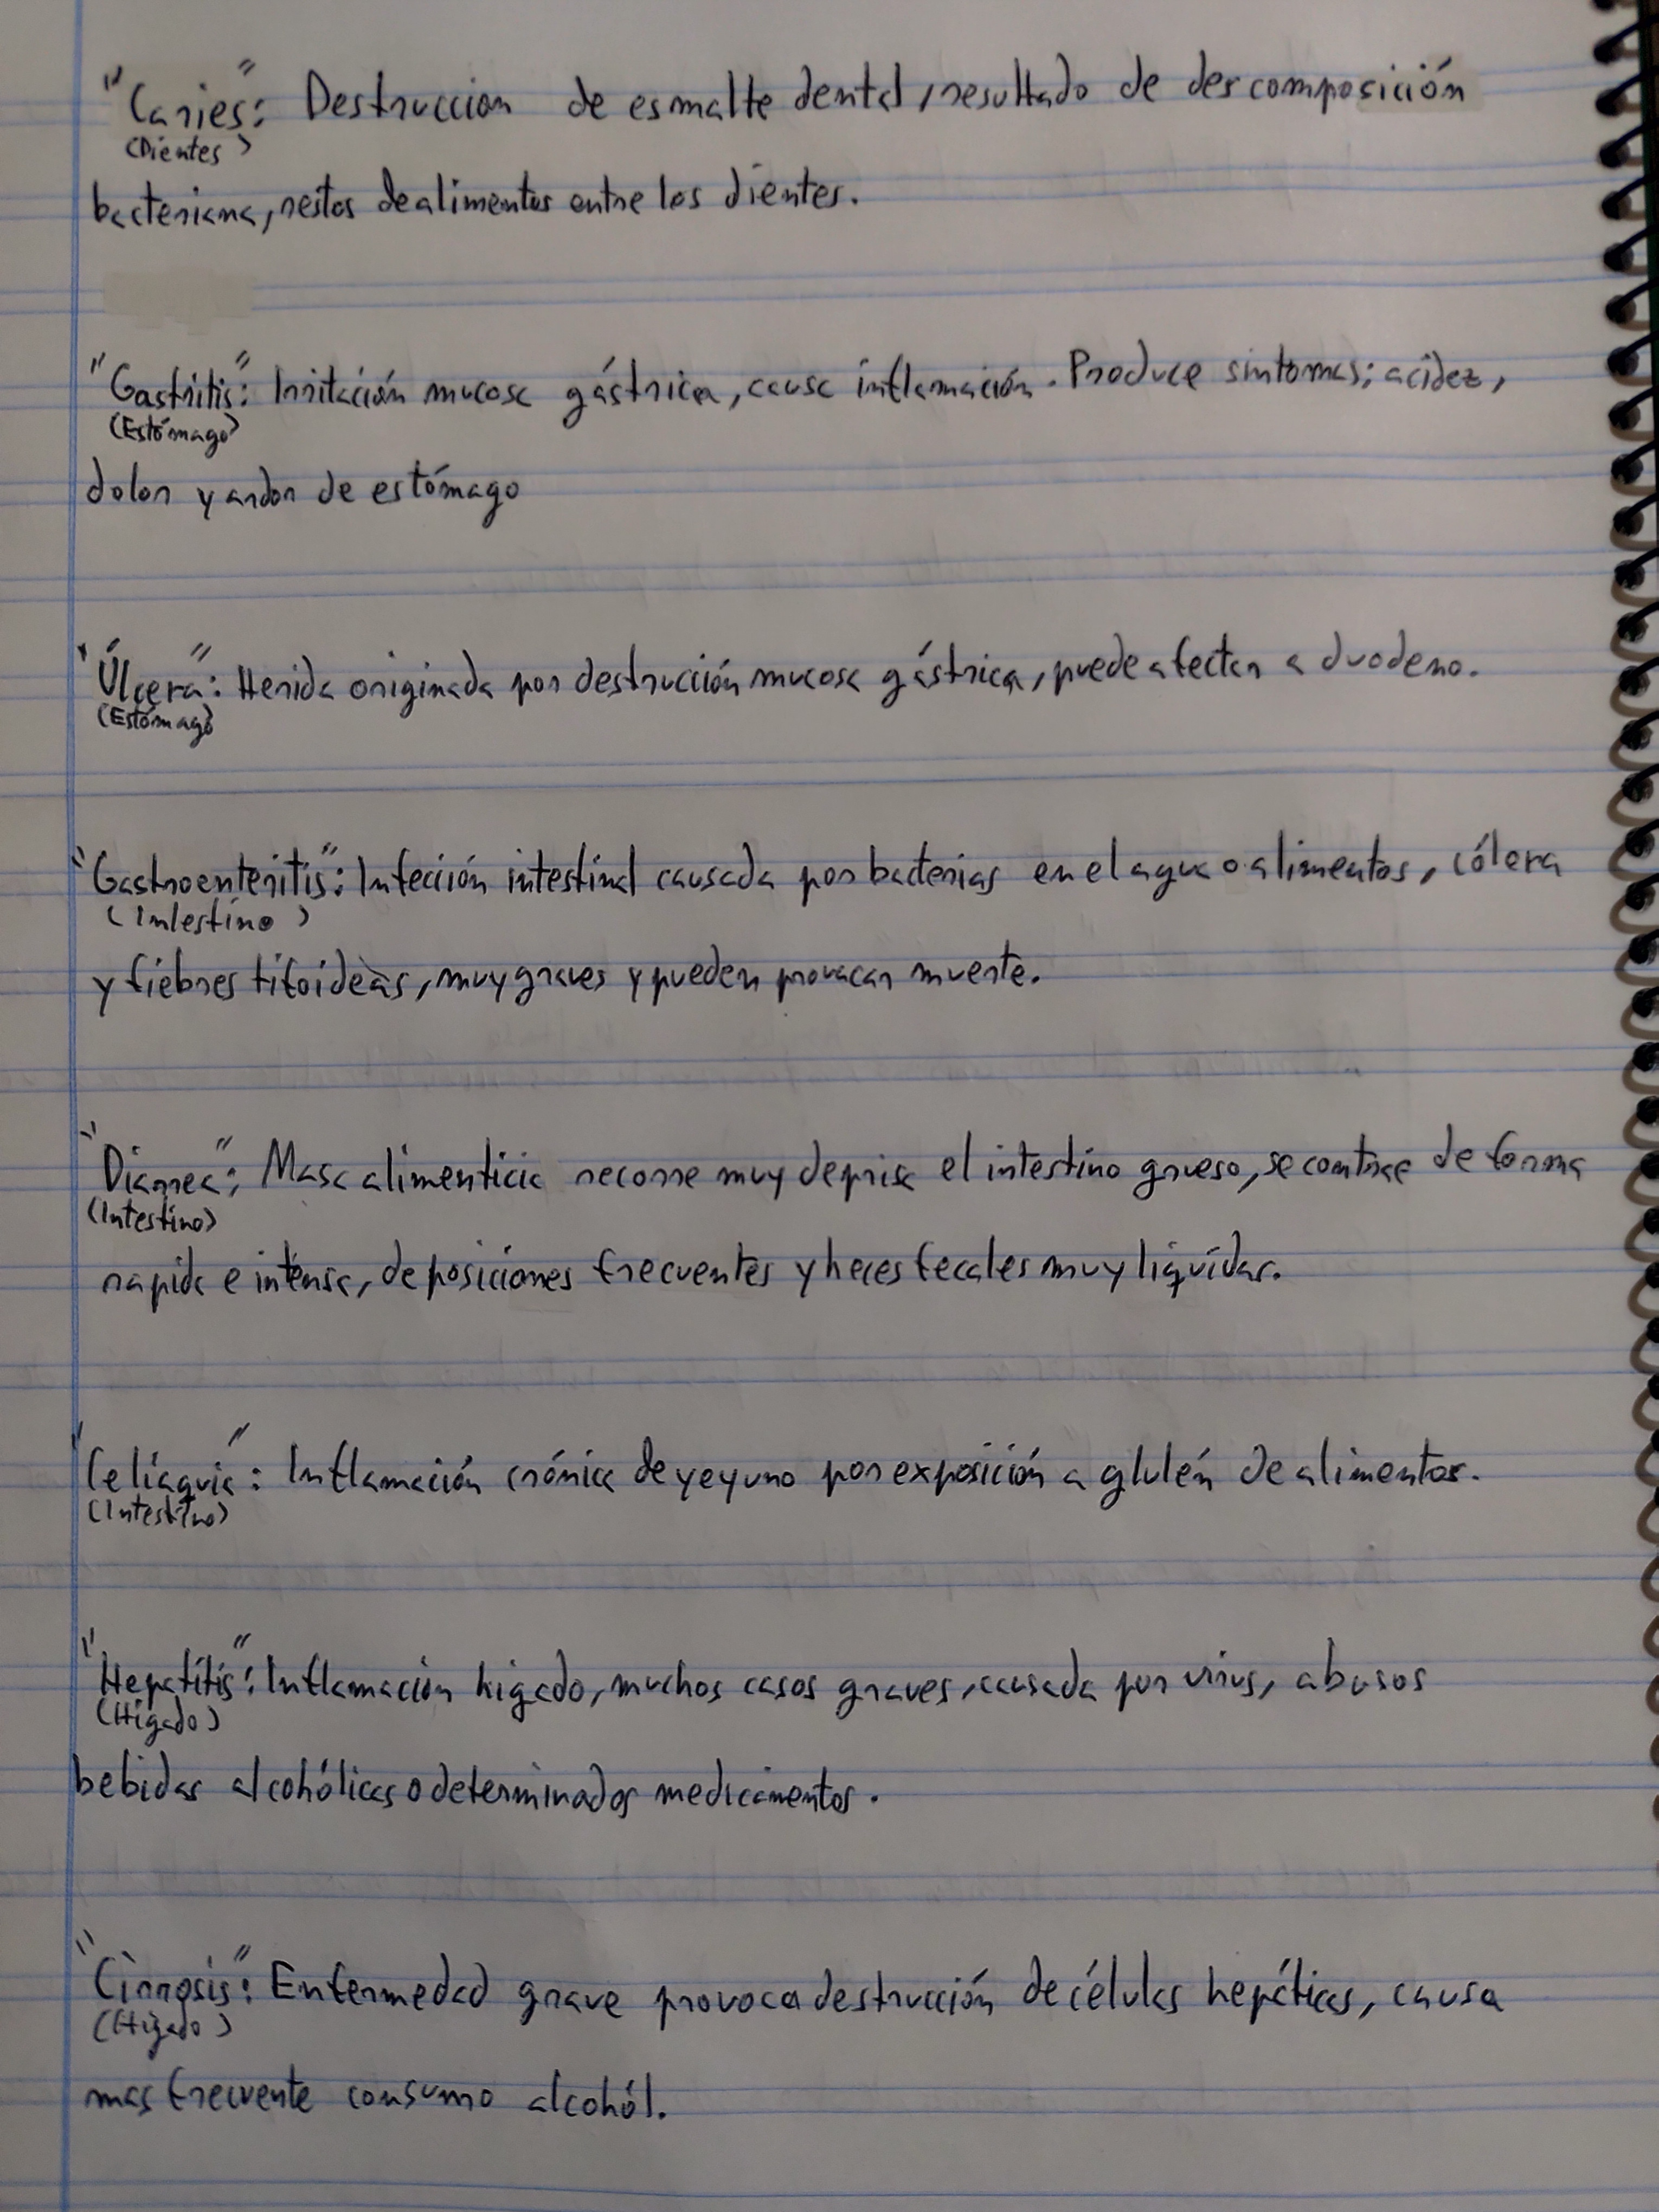 "Caries": Destruccion de esmalte dental, resultado de descomposición
(Dientes)
bacteriana, restos de alimentos entre los dientes.
"Gastritis": Irritación mucosa gástrica, causa inflamación. Produce sintomas; acidez,
(Estómago)
dolor y ardor de estómago
"Úlcera": Herida originada por destrucción mucosa gástrica, puede afectar a duodeno.
(Estómago)
"Gastroenteritis": Infección intestinal causada por bacterias en el agua o alimentos, cólera
(Intestino)
y fiebres tifoideas, muy graves y pueden provocar muerte.
"Diarrea": Masa alimenticia recorre muy deprisa el intestino grueso, se contrae de forma
(Intestino)
rapida e intensa, deposiciones frecuentes y heces fecales muy líquidas.
"Celíaquia": Inflamación crónica de yeyuno por exposición a glutén de alimentos.
(Intestino)
"Hepatítis": Inflamación higado, muchos casos graves, causada por virus, abusos
(Higado)
bebidas alcohólicas o determinados medicamentos.
"Cirrosis": Enfermedad grave provoca destrucción de células hepáticas, causa
(Higado)
mas frecuente consumo alcohól.